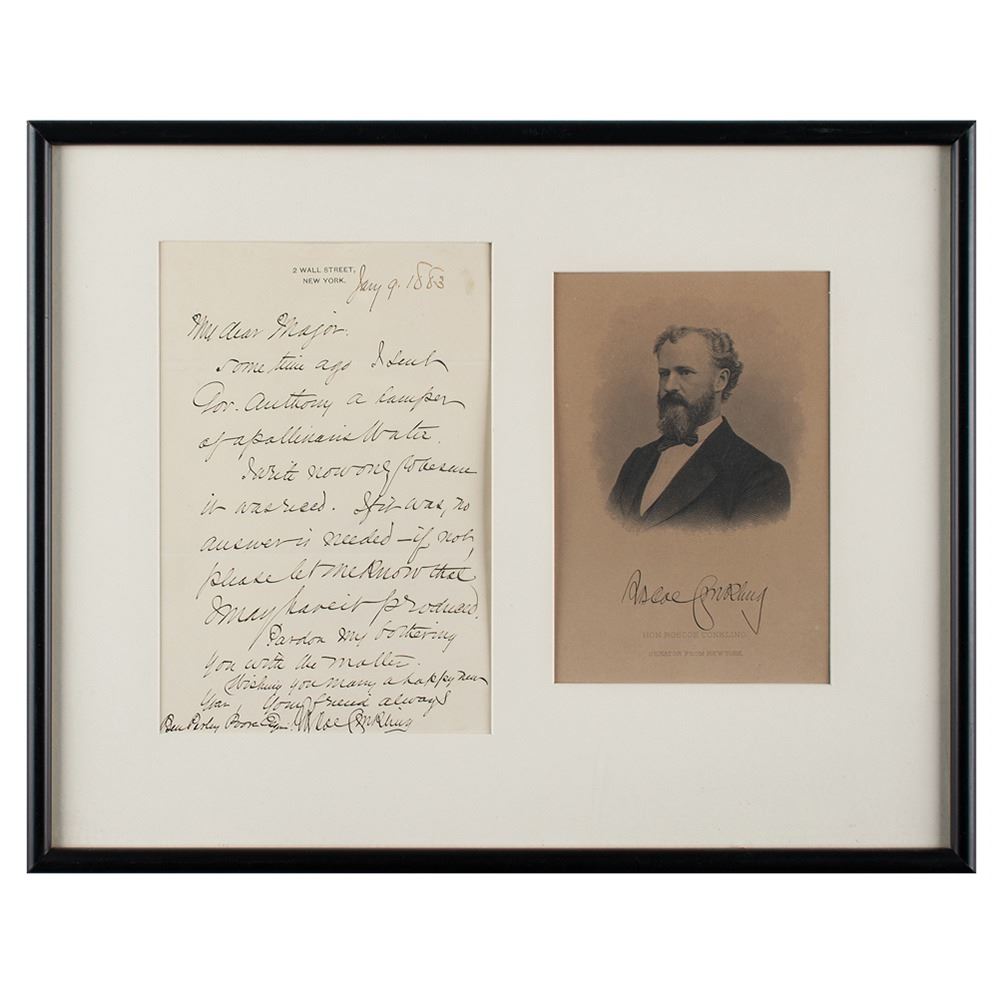 2 WALL STREET,
NEW YORK.
Jany 9. 1883
My dear Major.
some time ago I sent
Gov. Anthony a hamper
of apollinaris Water.
I write now only to be sure
it was recd. If it was, no
answer is needed – if not,
please let me know that
I may have it produced.
Pardon my bothering
you with the matter.
Wishing you many a happy new
Year, Your friend always
Ben Perley Poore Esqr. Roscoe Conkling
Roscoe Conkling
HON. ROSCOE CONKLING.
SENATOR FROM NEW YORK.